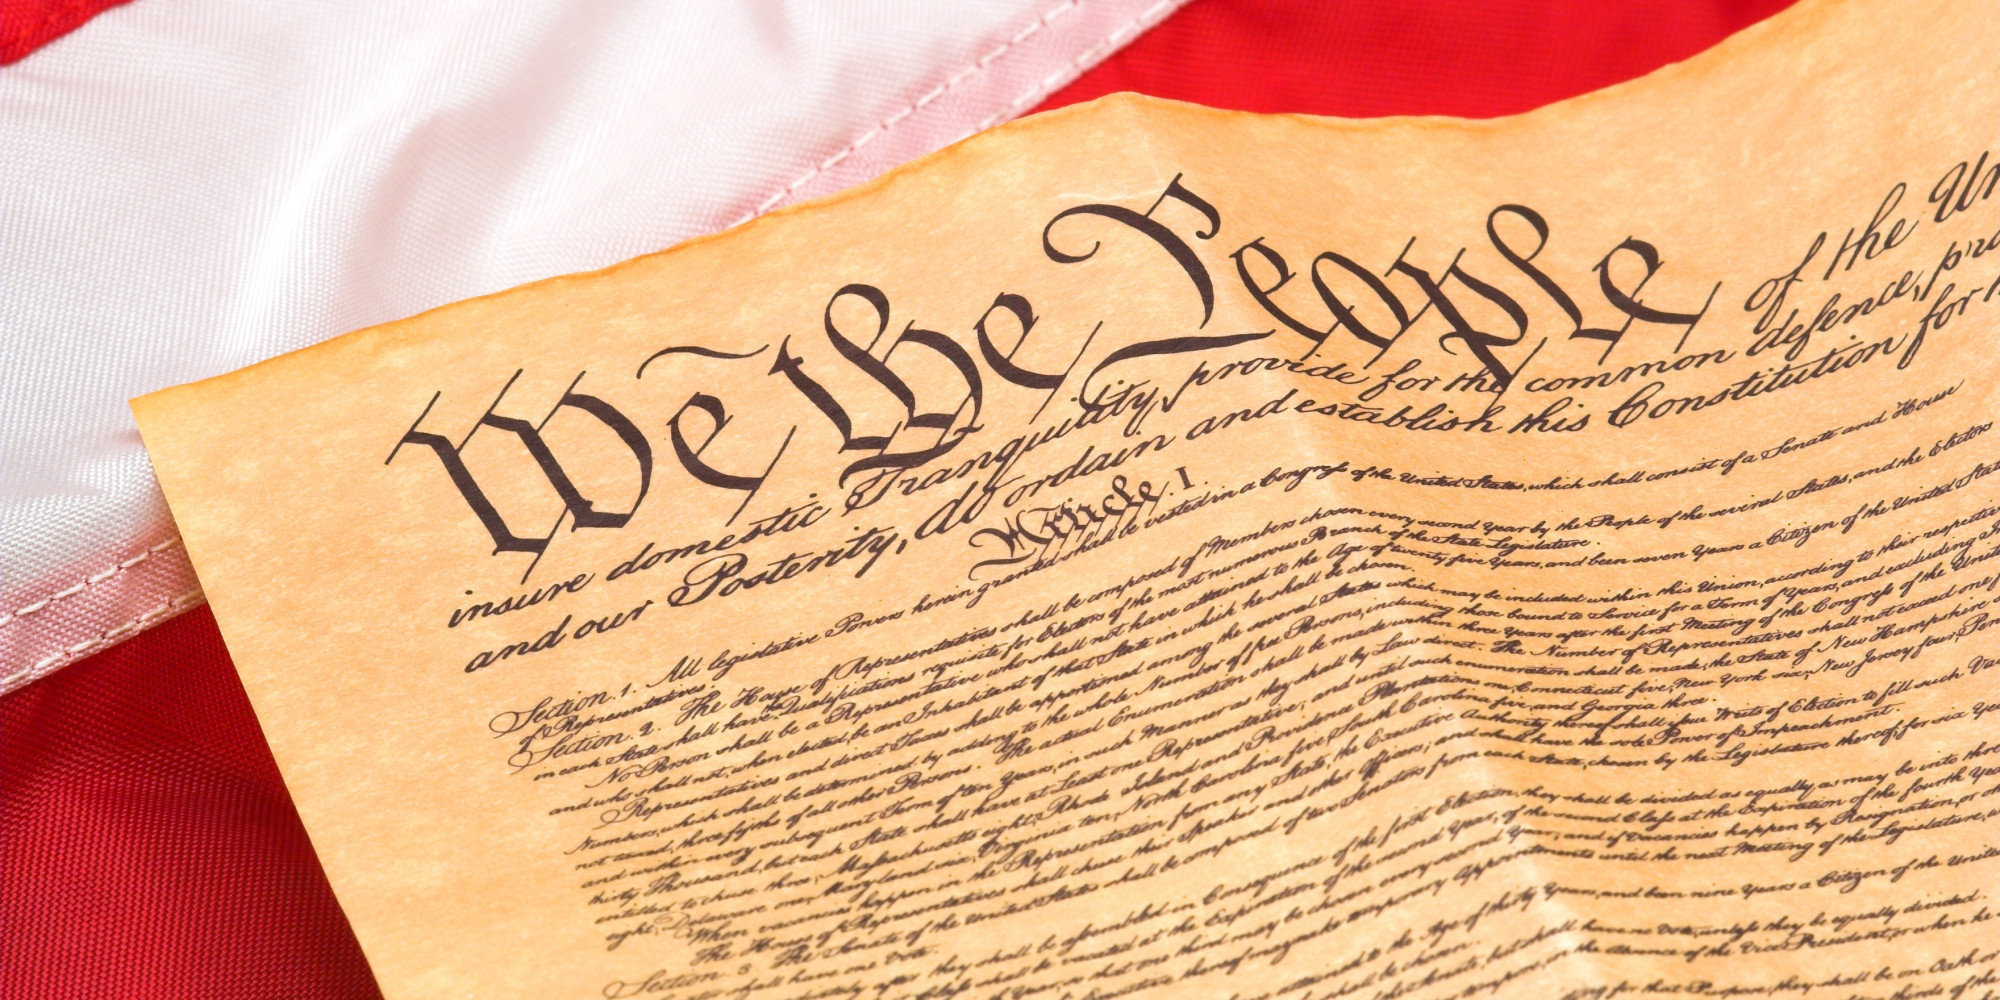 We the People of the Un
insure domestic Tranquility, provide for the common defence, pro
and our Posterity, do ordain and establish this Constitution for
Article. I.
Section. 1. All legislative Powers herein granted shall be vested in a Congress of the United States, which shall consist of a Senate and House
of Representatives.
Section. 2. The House of Representatives shall be composed of Members chosen every second Year by the People of the several States, and the Electors
in each State shall have Qualifications requisite for Electors of the most numerous Branch of the State Legislature.
No Person shall be a Representative who shall not have attained to the Age of twenty five Years, and been seven Years a Citizen of the United
and who shall not, when elected, be an Inhabitant of that State in which he shall be chosen.
Representatives and direct Taxes shall be apportioned among the several States which may be included within this Union, according to their respective
Numbers, which shall be determined by adding to the whole Number of free Persons, including those bound to Service for a Term of Years, and excluding
not taxed, three fifths of all other Persons. The actual Enumeration shall be made within three Years after the first Meeting of the Congress of the United
and within every subsequent Term of ten Years, in such Manner as they shall by Law direct. The Number of Representatives shall not exceed one
thirty Thousand, but each State shall have at Least one Representative; and until such enumeration shall be made, the State of New Hampshire
entitled to chuse three, Massachusetts eight, Rhode Island and Providence Plantations one, Connecticut five, New York six, New Jersey four,
eight, Delaware one, Maryland six, Virginia ten, North Carolina five, South Carolina five, and Georgia three.
When vacancies happen in the Representation from any State, the Executive Authority thereof shall issue Writs of Election to fill such
The House of Representatives shall chuse their Speaker and other Officers; and shall have the sole Power of Impeachment.
Section. 3. The Senate of the United States shall be composed of two Senators from each State, chosen by the Legislature thereof, for six
shall have one Vote.
after they shall be assembled in Consequence of the first Election, they shall be divided as equally as may be into
shall be vacated at the Expiration of the second Year, of the second Class at the Expiration of the fourth
so that one third may be chosen every second Year; and if Vacancies happen by Resignation, or
Executive thereof may make temporary Appointments until the next Meeting of the Legislature,
attained to the Age of thirty Years, and been nine Years a Citizen of the United
shall be chosen.
the Senate, but shall have no Vote, unless they be equally divided.
tempore, in the Absence of the Vice President, or when he
for that Purpose, they shall be on Oath or